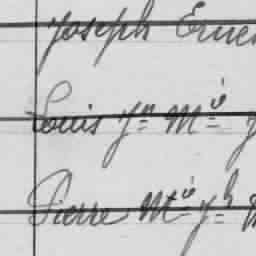 Joseph Ernes
Louis Jn Mie J
Pierre Mie Jh